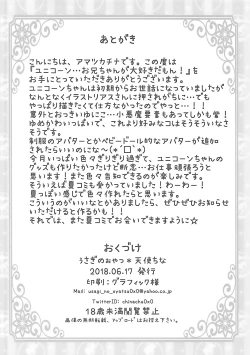 あとがき
こんにちは、アマツカチナです。この度は
『ユニコーン…お兄ちゃんが大好きだもん！』を
お手にとっていただきありがとうございます。
ユニコーンちゃんは初期からお世話になっていましたが
なんとなくイラストリアスさんに押されがちに…でも
やっぱり描きたくて仕方なかったのでやっと…！！
意外とおっきいゆに…小悪魔要素もあってしかも皆！
ゆめかわいっぱいで、これより好みなコはそうそういなさ
そうです。
制服のアバターとかベビードール的なアバターが追加
されたらいいのにな～(*´□`*)
今月いっぱい色々ぎりぎり過ぎて、ユニコーンちゃんの
グッズも作りたかったけど断念…お仕事頑張ろうと
思います！また色々告知できるのが楽しみです。
そういえば夏コミも受かっていました！わーわー！
夏っぽい感じで色々作れたらと思います。
こういうのがいいなとかありましたら、ぜひぜひお知らせ
いただけると作るかも！！
それでは、また夏コミでお会いできますように☆
おくづけ
うさぎのおやつ * 天使ちな
2018.06.17 発行
印刷：グラフィック様
Mail: usagi_no_oyatsu0x0@yahoo.co.jp
TwitterID: chinacha0x0
18歳未満閲覧禁止
画像の無断転載、アップロードはお控え下さい。